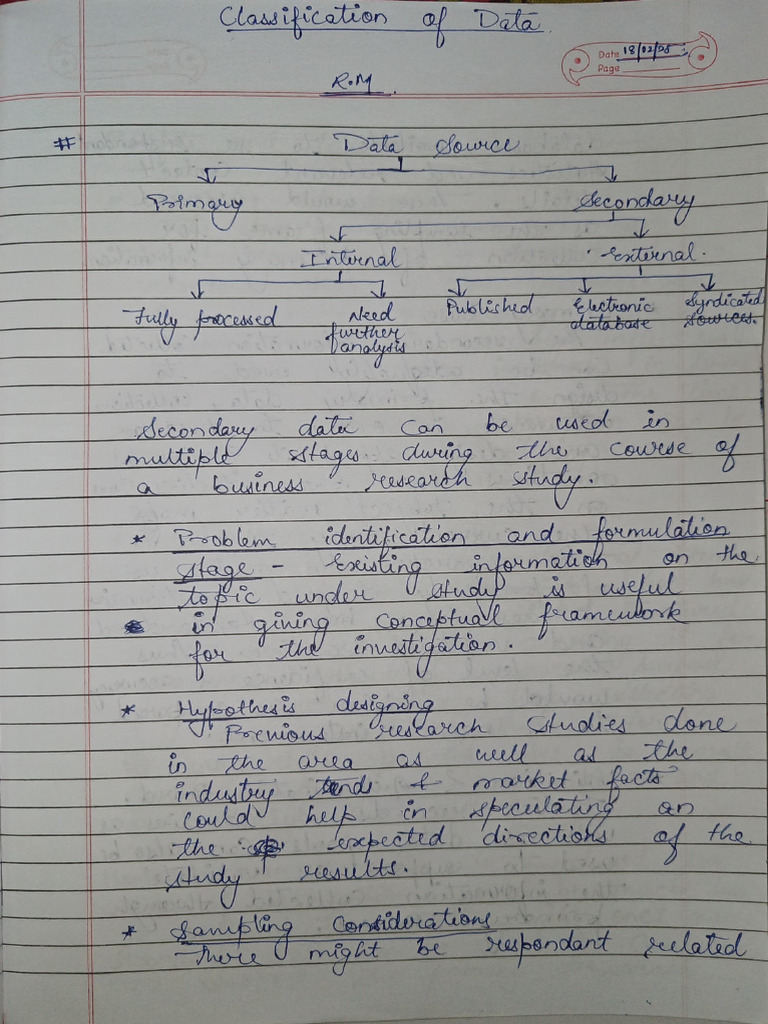 Classification of Data
Date 18/02/25
Page
R.M
# Data Source
Primary Secondary
Internal External.
Fully processed Need further analysis Published Electronic database Syndicated sources.
Secondary data can be used in
multiple stages during the course of
a business research study.
* Problem identification and formulation
stage - Existing information on the
topic under study is useful
in giving conceptual framework
for the investigation.
* Hypothesis designing
Previous research studies done
in the area as well as the
industry tends & market facts
could help in speculating on
the expected directions of the
study results.
* Sampling Considerations
There might be respondant related